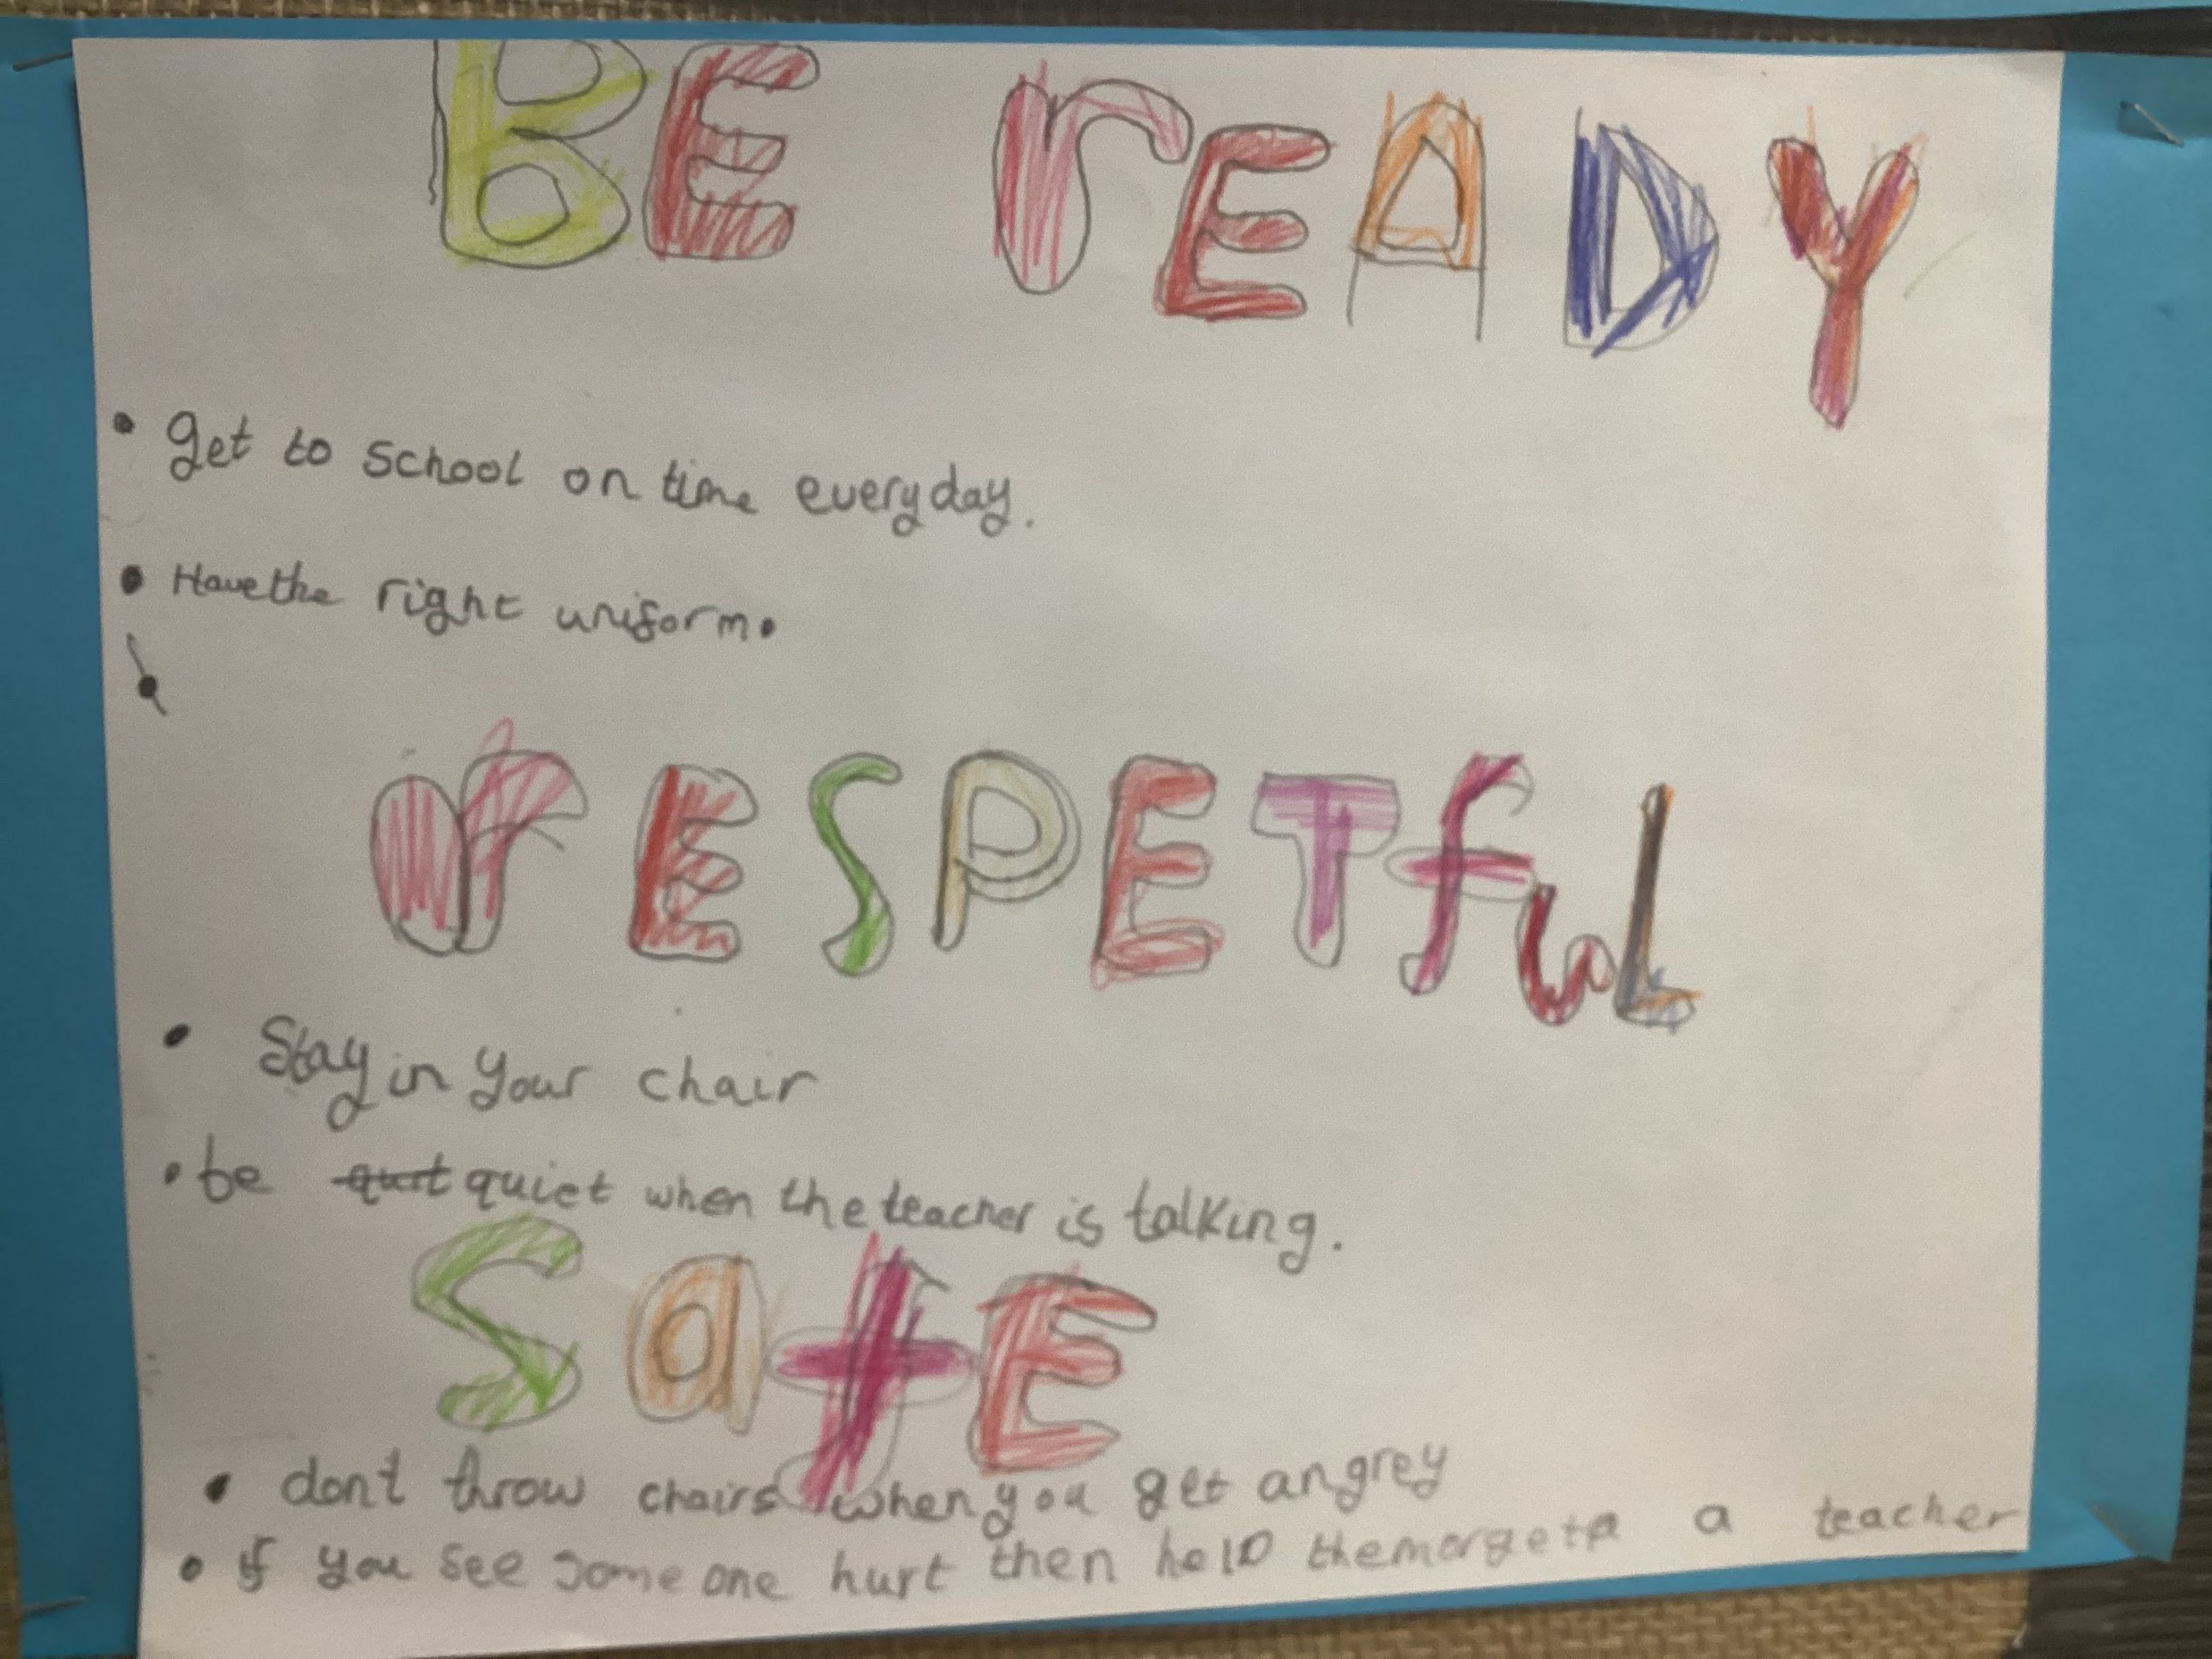 BE rEADY
• get to school on time everyday.
• Have the right uniform.
•
rESPETfuL
• Stay in your chair
• be quiet when the teacher is talking.
SafE
• don't throw chairs when you get angrey
• if you see some one hurt then help them or get a a teacher